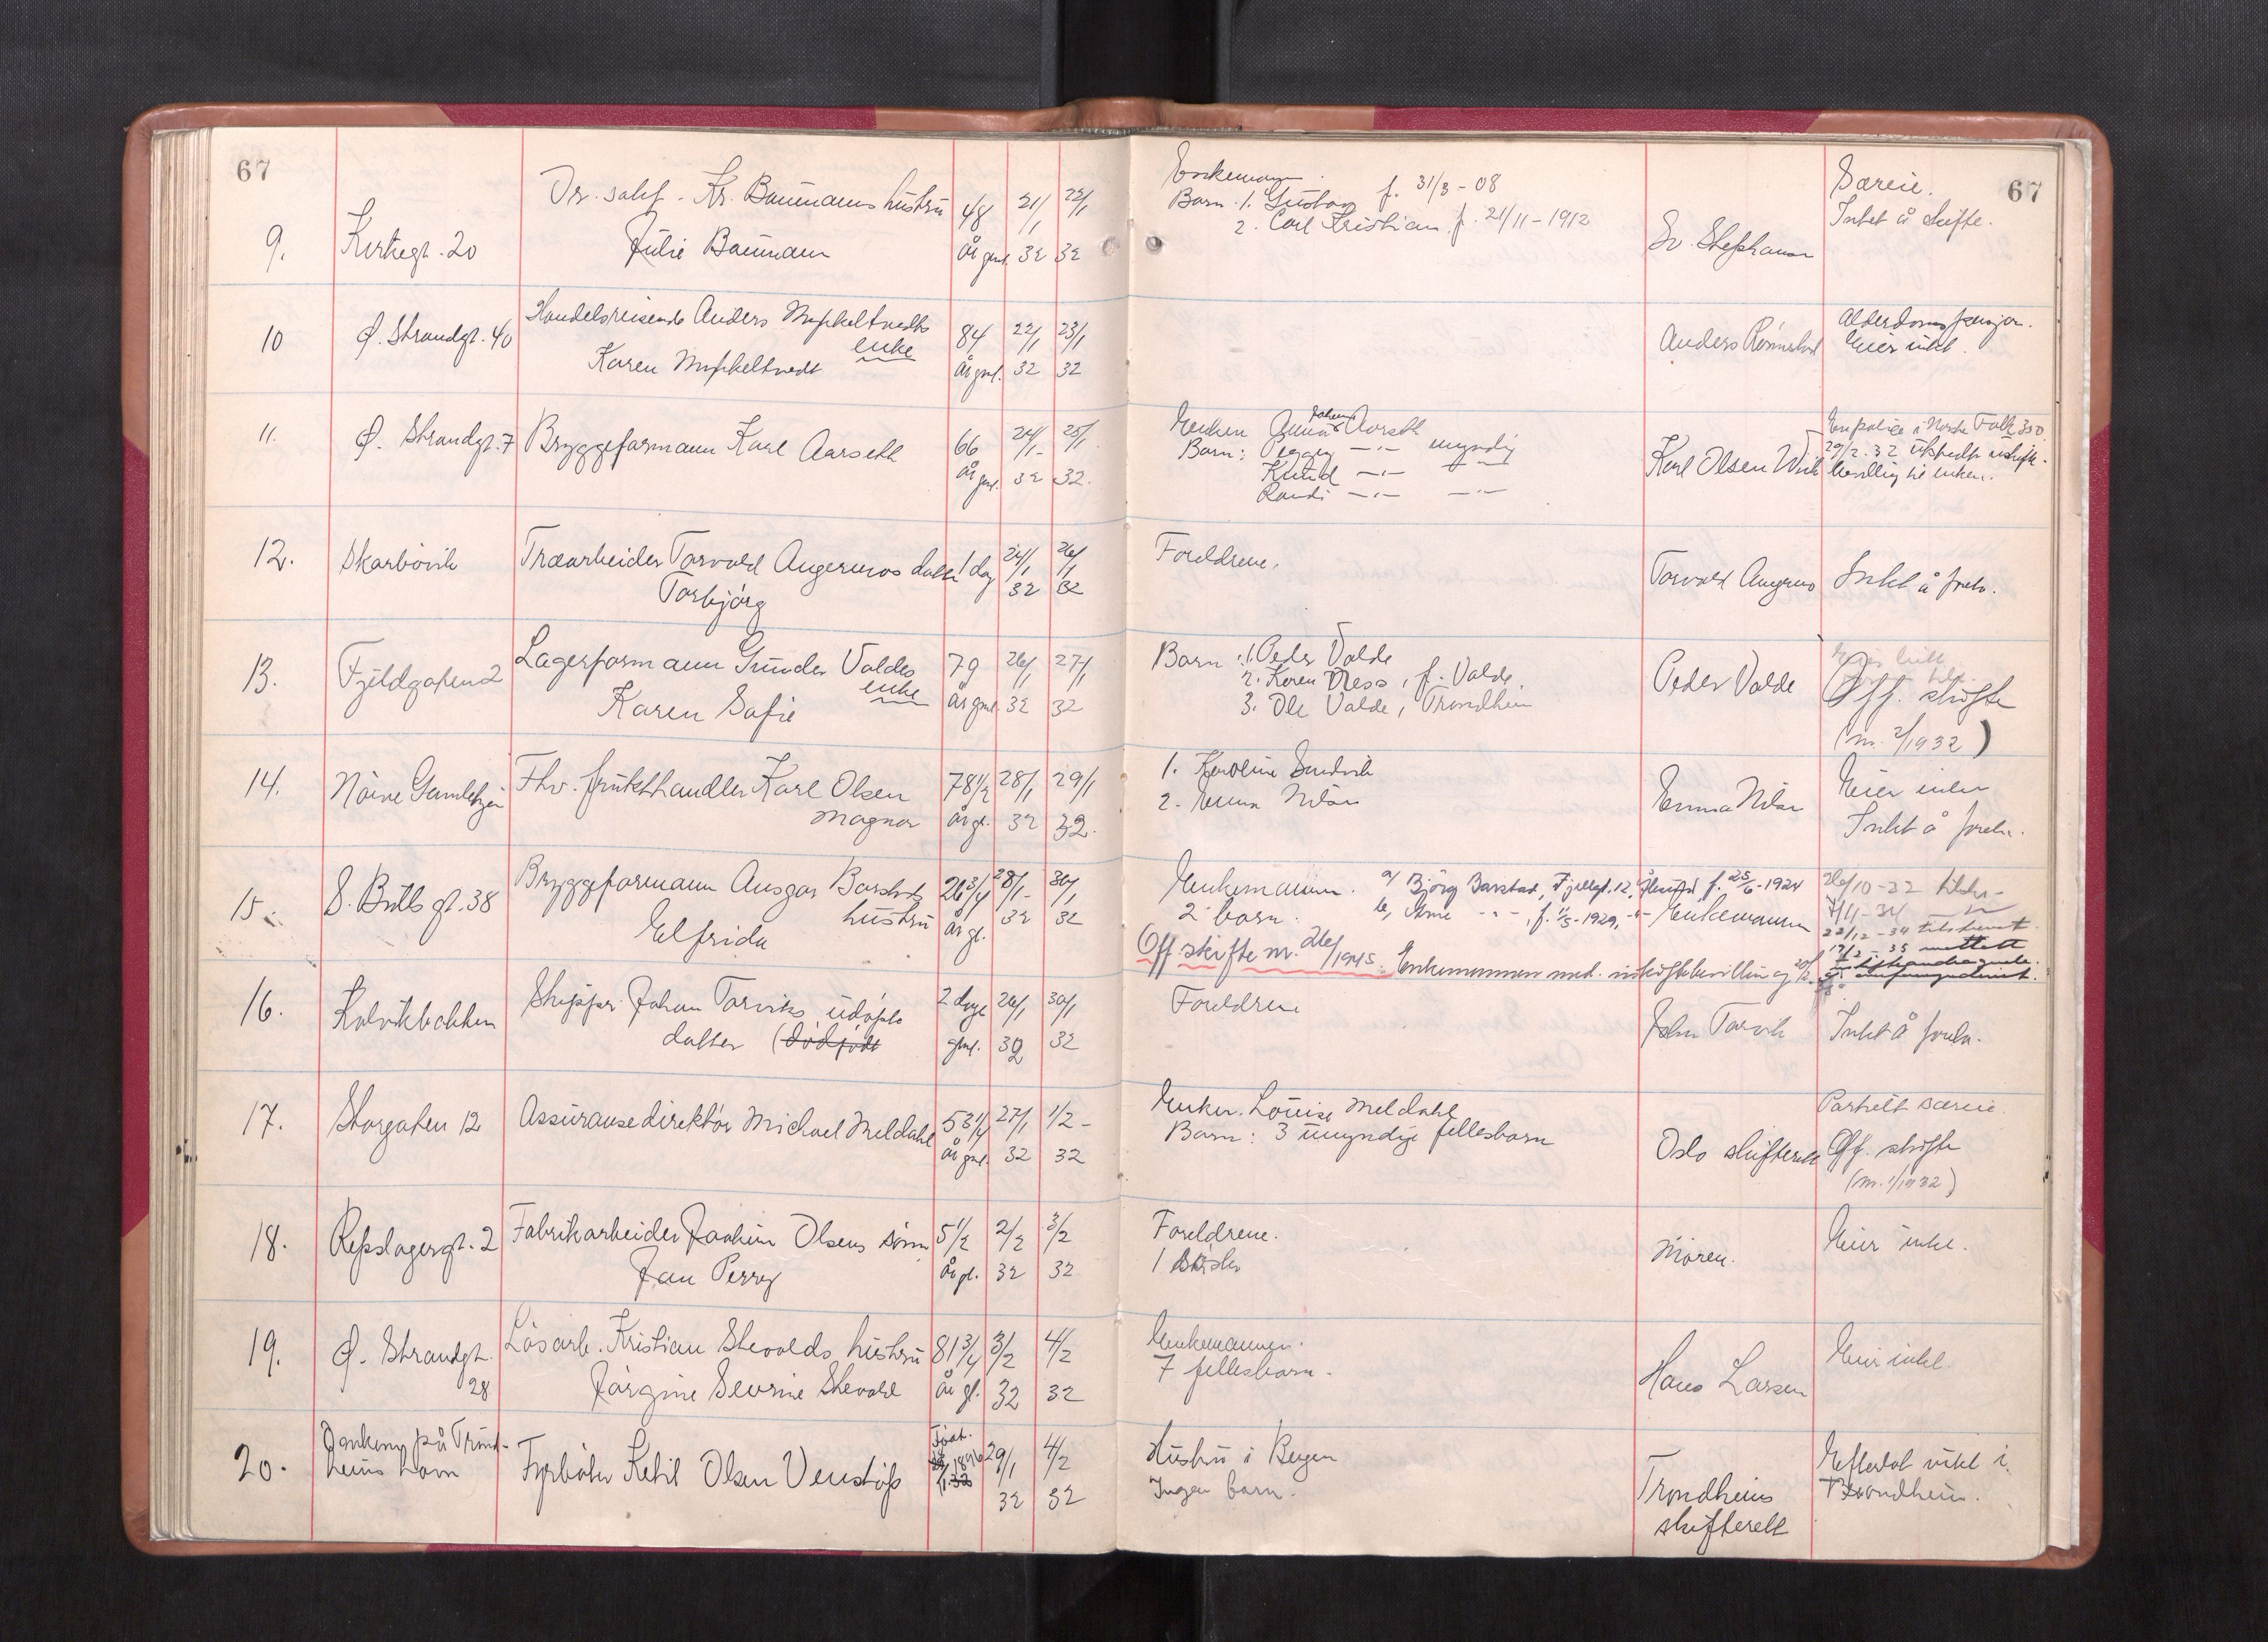 67
67
9.
Kirkegt. 20
Or. sakf. Kr. Baumanns hustru
Julie Baumann
48
år gml.
21/1
32
22/1
32
Enkemann.
Barn: 1. Gustav f. 31/3-08
2. Carl Kristian f. 21/11-1912
Sv. Stephansen
Særeie.
Intet å skifte.
10
Ø. Strandgt. 40
Handelsreisende Anders Myhltvedts
enke
Karen
84
År gml.
22/1
32
23/1
32
Anders Rønnestad
Alderdomspensjon.
Eier intet.
11.
Ø. Strandgt. 7
Bryggeformann Karl Aarseth
66
år gml.
24/1
32
25/1
32.
Enken Anna Aarseth
Barn: Peggy —"— umyndig
Knud —"— —"—
Randi —"— —"—
Karl Olsen Wiik
En police i Norske Folk 350
29/2-32 utstedt uskifte-
bevilling til enken.
12.
Skarbövik
Træarbeider Torvald Angermos datter
Torbjörg
1 dag
24/1
32
26/1
32
Foreldrene.
Torvald Angermo
Intet å foreta.
13.
Fjeldgaten 2
Lagerformann Gunder Valdes
enke
Karen Sofie
79
År gml.
26/1
32
27/1
32
Barn: 1. Peder Valde
2. Karen Ness, f. Valde
3. Ole Valde, Trondheim
Peder Valde
Off. skifte
(nr. 2/1932)
14.
Nörve Gamlehjem
Fhv. frukthandler Karl Olsen
Magnor
78 1/2
År gl.
28/1
32
29/1
32.
1. Karoline Sandvik
2. Emma Nilsen
Emma Nilsen
Eier intet
Intet å foreta.
15.
S. Bulls gt. 38
Bryggeformann Ansgar Barstads
hustru
Elfrida
26 3/4
År gl.
28/1-
32
30/1
32
Enkemannen.
2 barn.
a, Björg Barstad, Fjellgt. 12, Ålesund f. 25/6-1924
b, Arne -"-, f. 11/5-1929, -"-
Enkemannen
26/10-32
7/11-34
22/12-34
17/2-35
Off. skifte nr. 26/1945. Enkemannen med. uskiftebevilling
16.
Kalvikbakken
Skipper Johan Torviks udöpte
datter (dödfödt
2 dage
gml.
26/1
32
30/1
32
Foreldrene
John Torvik
Intet å foreta.
17.
Storgaten 12
Assuransedirektör Michael Meldahl
53 1/4
år gml.
27/1
32
1/2-
32
Enken Louise Meldahl
Barn: 3 umyndige fellesbarn
Oslo skifterett
Partielt særeie.
Off. skifte
(nr. 1/1932)
18.
Repslagergt. 2
Fabrikarbeider Joakim Olsens sönn
Jan Perry
5 1/2
År gl.
2/2
32
3/2
32
Foreldrene.
1 söster
Moren.
Eier intet.
19.
Ø. Strandgt.
28
Lösarb. Kristian Stevolds hustru
Jörgine Severine Stevold
81 3/4
År gl.
3/2
32
4/2
32
Enkemannen.
7 fellesbarn.
Hans Larsen
Eier intet.
20.
på Trond-
heims havn
Fyrböter Ketil Olsen Venstöp
Födt.
1896
29/1
32
4/2
32
Hustru i Bergen
Ingen barn.
Trondheims
skifterett
Efterlot intet i
Trondheim.